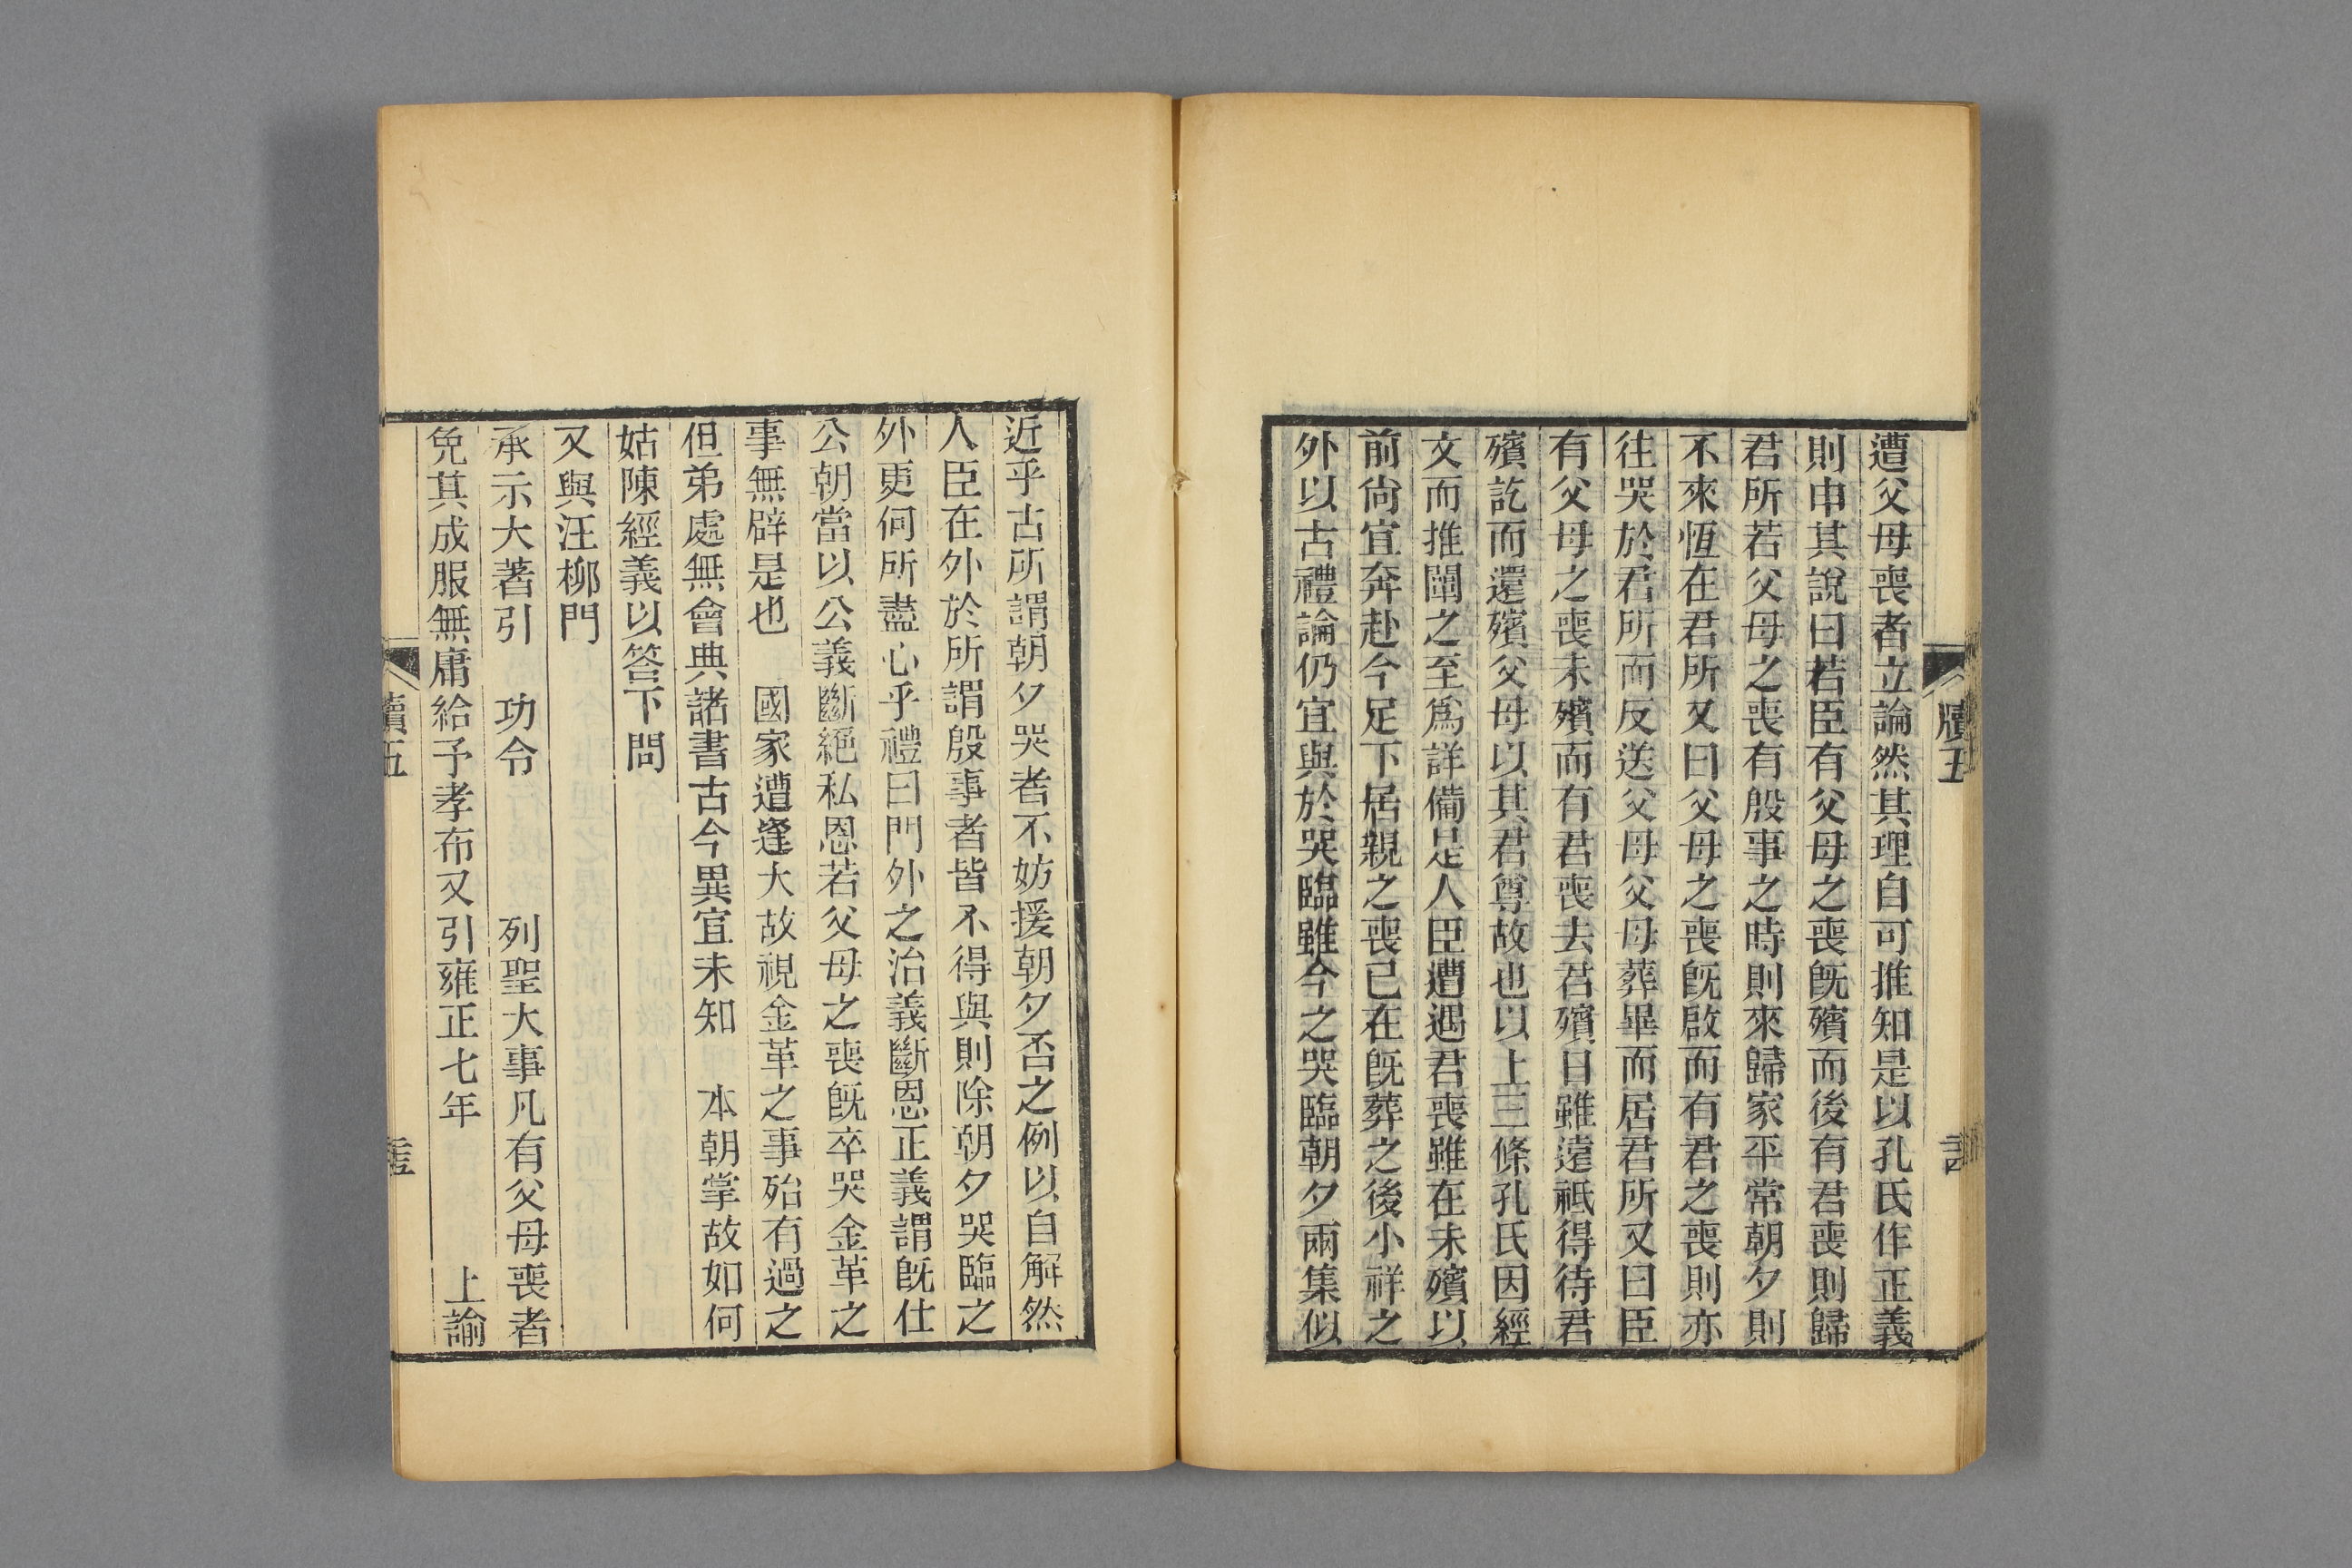 遭父母喪者立論然其理自可推知是以孔氏作正義
則申其說曰若臣有父母之喪旣殯而後有君喪則歸
君所若父母之喪有殷事之時則來歸家平常朝夕則
不來恆在君所又曰父母之喪旣啟而有君之喪則亦
往哭於君所而反送父母父母葬畢而居君所又曰臣
有父母之喪未殯而有君喪去君殯日雖遠祗得待君
殯訖而還殯父母以其君尊故也以上三條孔氏因經
文而推闡之至爲詳備是人臣遭遇君喪雖在未殯以
前尙宜奔赴今足下居親之喪已在旣葬之後小祥之
外以古禮論仍宜與於哭臨雖今之哭臨朝夕兩集似
近乎古所謂朝夕哭者不妨援朝夕否之例以自解然
人臣在外於所謂殷事者皆不得與則除朝夕哭臨之
外更何所盡心乎禮曰門外之治義斷恩正義謂旣仕
公朝當以公義斷絕私恩若父母之喪旣卒哭金革之
事無辟是也　國家遭逢大故視金革之事殆有過之
但弟處無會典諸書古今異宜未知　本朝掌故如何
姑陳經義以答下問
又與汪柳門
承示大著引　功令　列聖大事凡有父母喪者
免其成服無庸給予孝布又引雍正七年　上諭
牘五